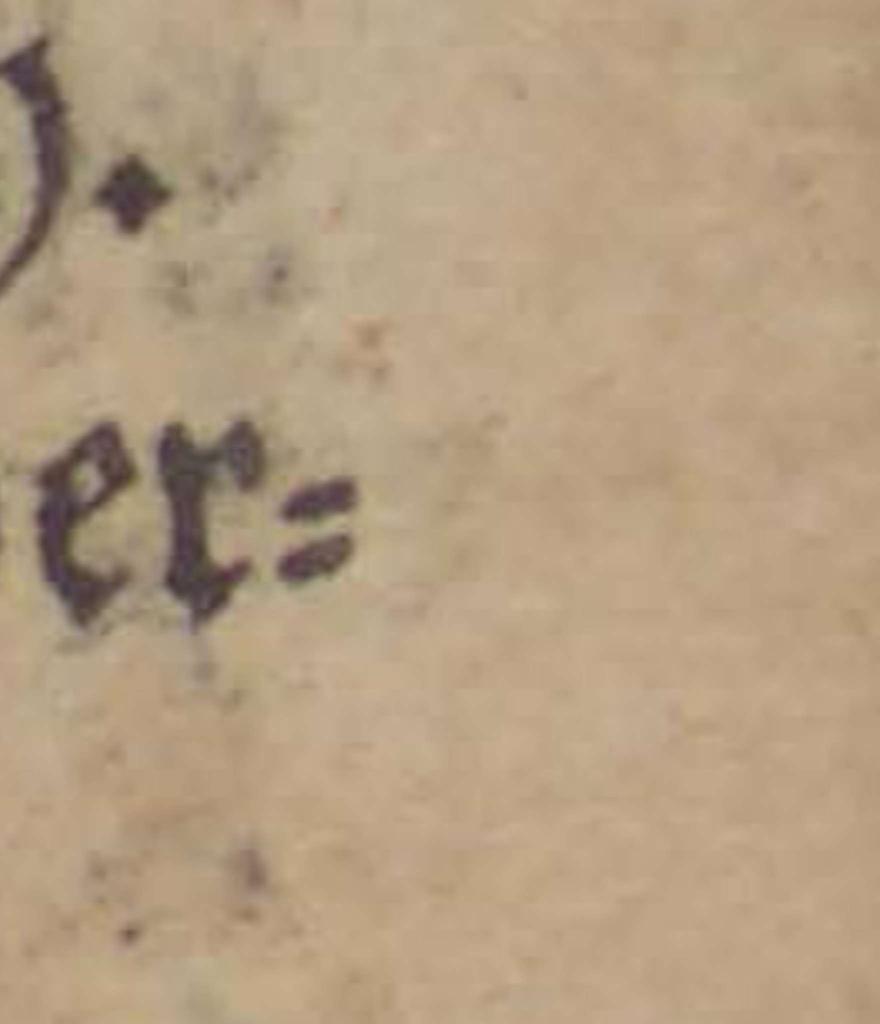 ).
er=